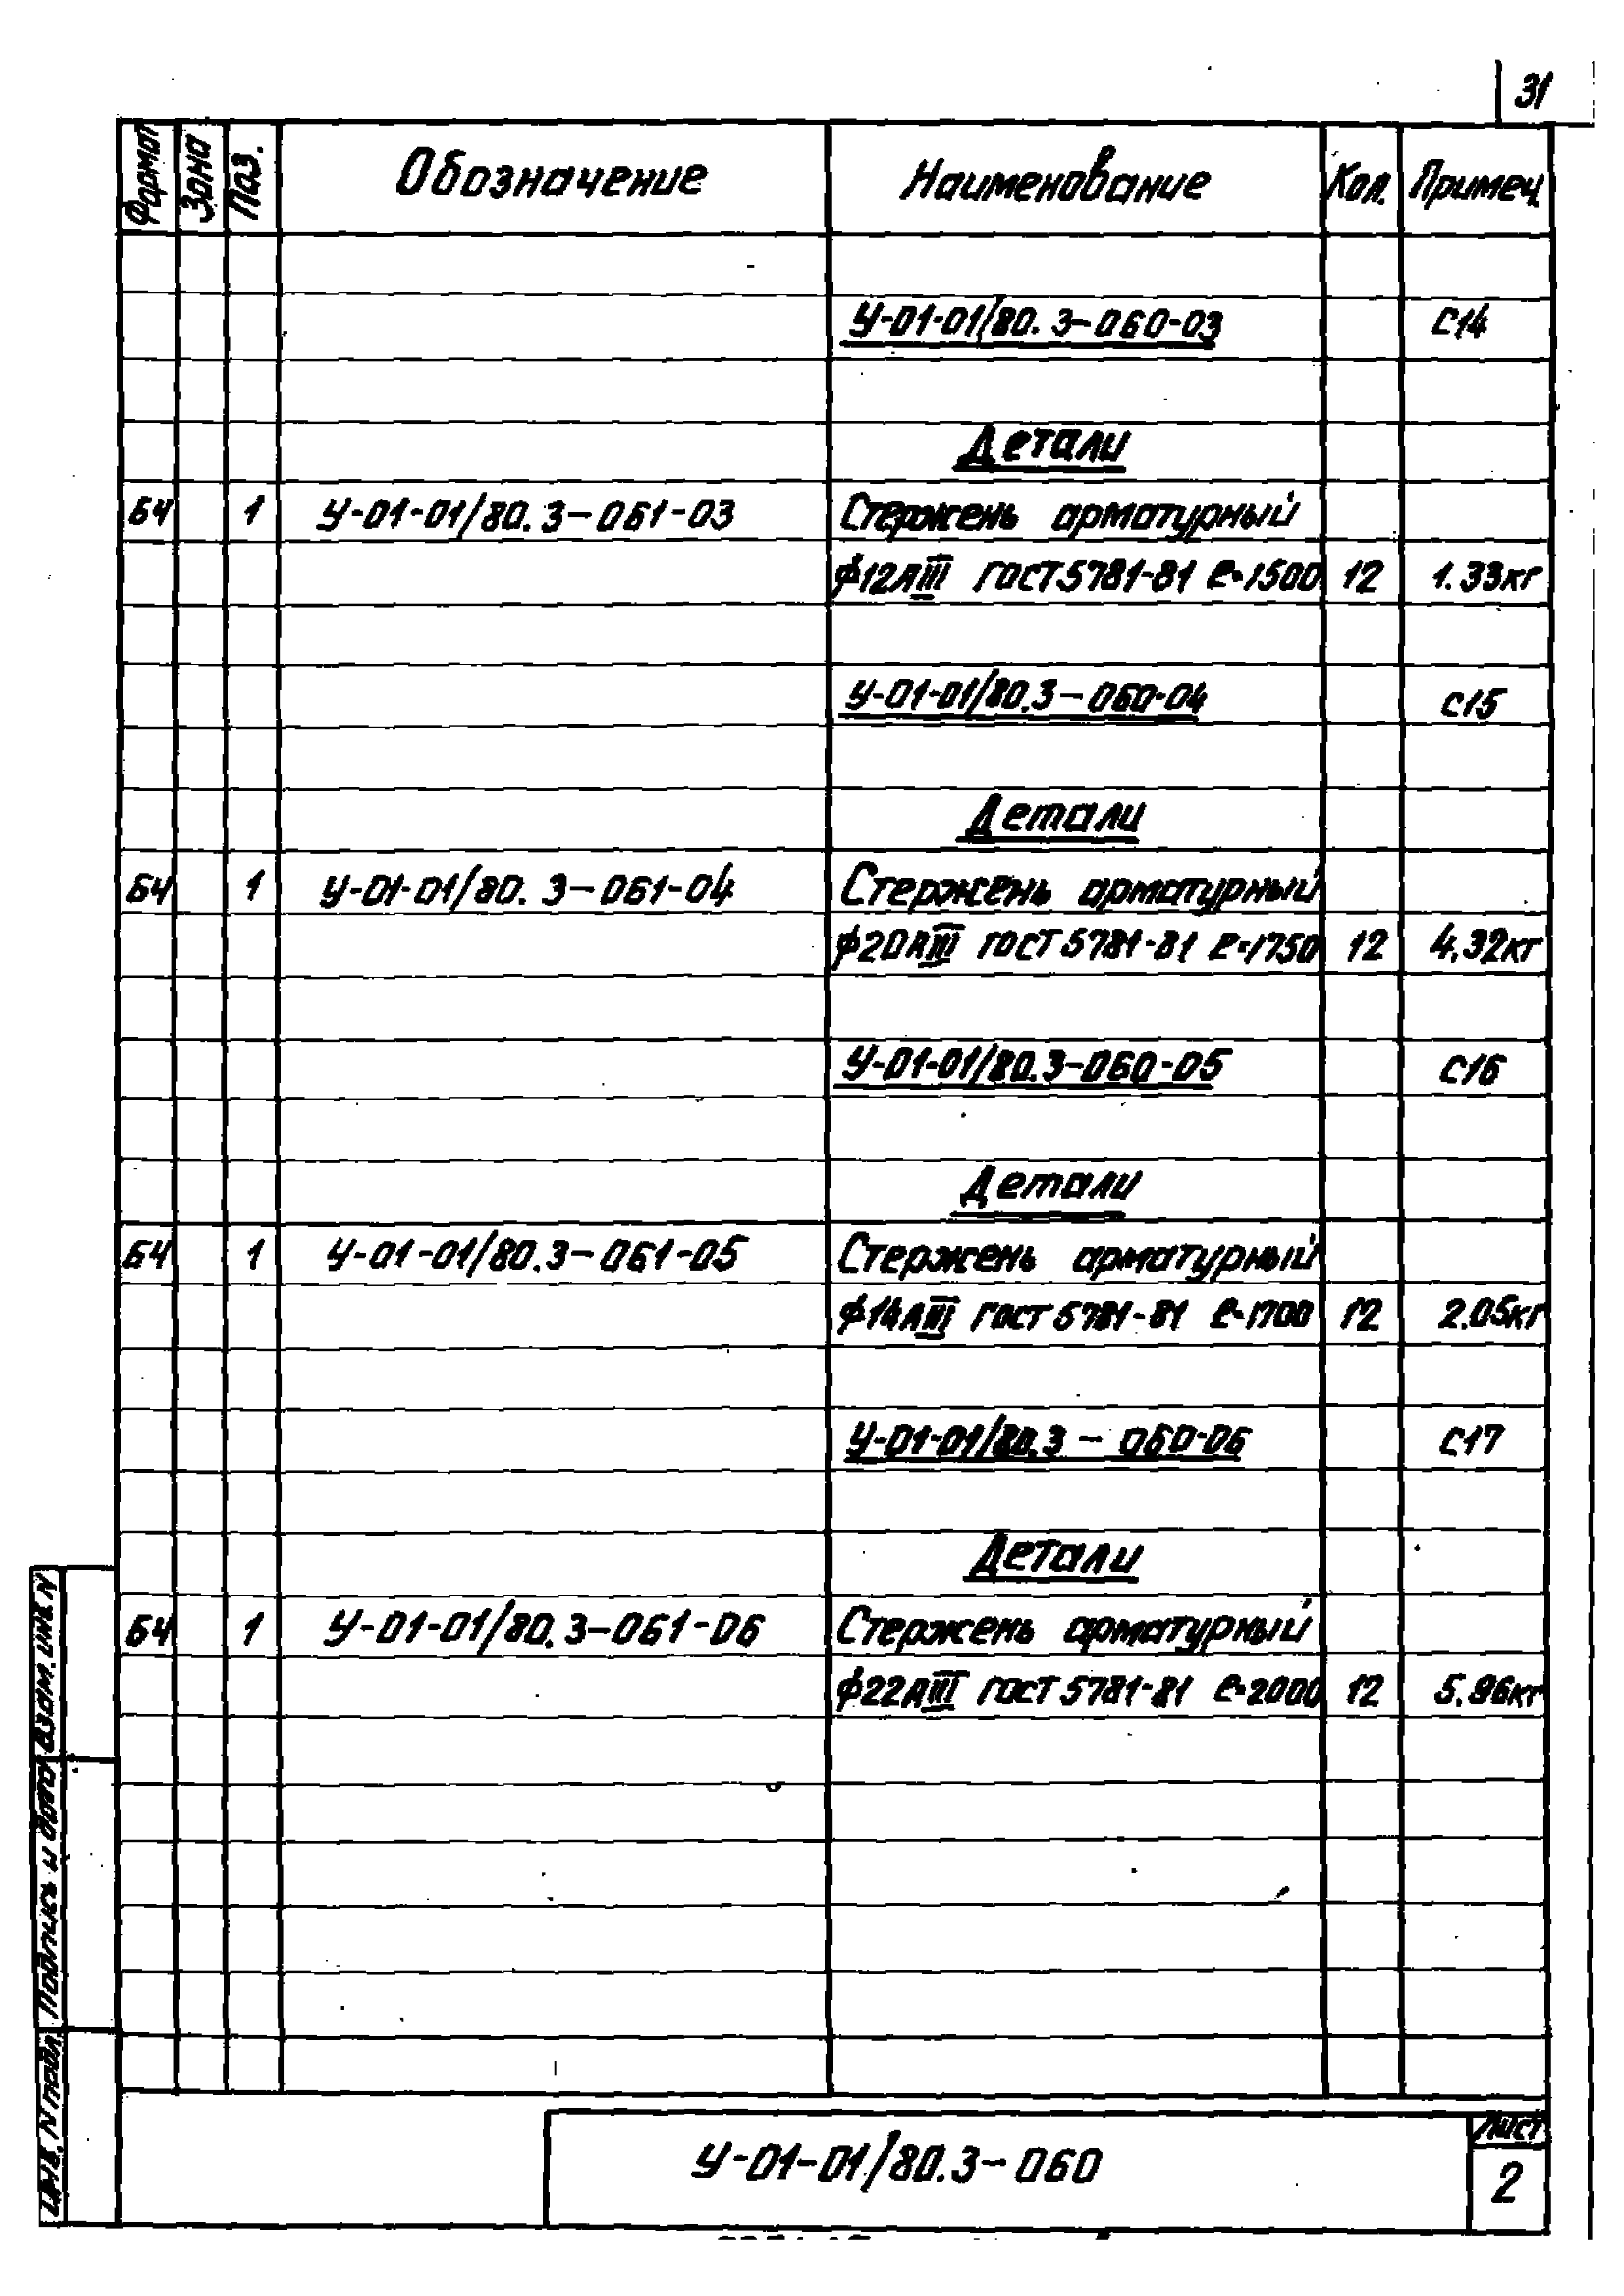 31
Формат Зона Поз. Обозначение Наименование Кол. Примеч.
У-01-01/80.3-060-03 С14
Детали
БЧ 1 У-01-01/80.3-061-03 Стержень арматурный
ф12АIII ГОСТ 5781-81 ℓ=1500 12 1.33кг
У-01-01/80.3-060-04 С15
Детали
БЧ 1 У-01-01/80.3-061-04 Стержень арматурный
ф20АIII ГОСТ 5781-81 ℓ=1750 12 4.32кг
У-01-01/80.3-060-05 С16
Детали
БЧ 1 У-01-01/80.3-061-05 Стержень арматурный
ф14АIII ГОСТ 5781-81 ℓ=1700 12 2.05кг
У-01-01/80.3-060-06 С17
Детали
БЧ 1 У-01-01/80.3-061-06 Стержень арматурный
ф22АIII ГОСТ 5781-81 ℓ=2000 12 5.96кг
Взам. инв. N
Подпись и дата
Инв. N подл.
У-01-01/80.3-060
Лист
2